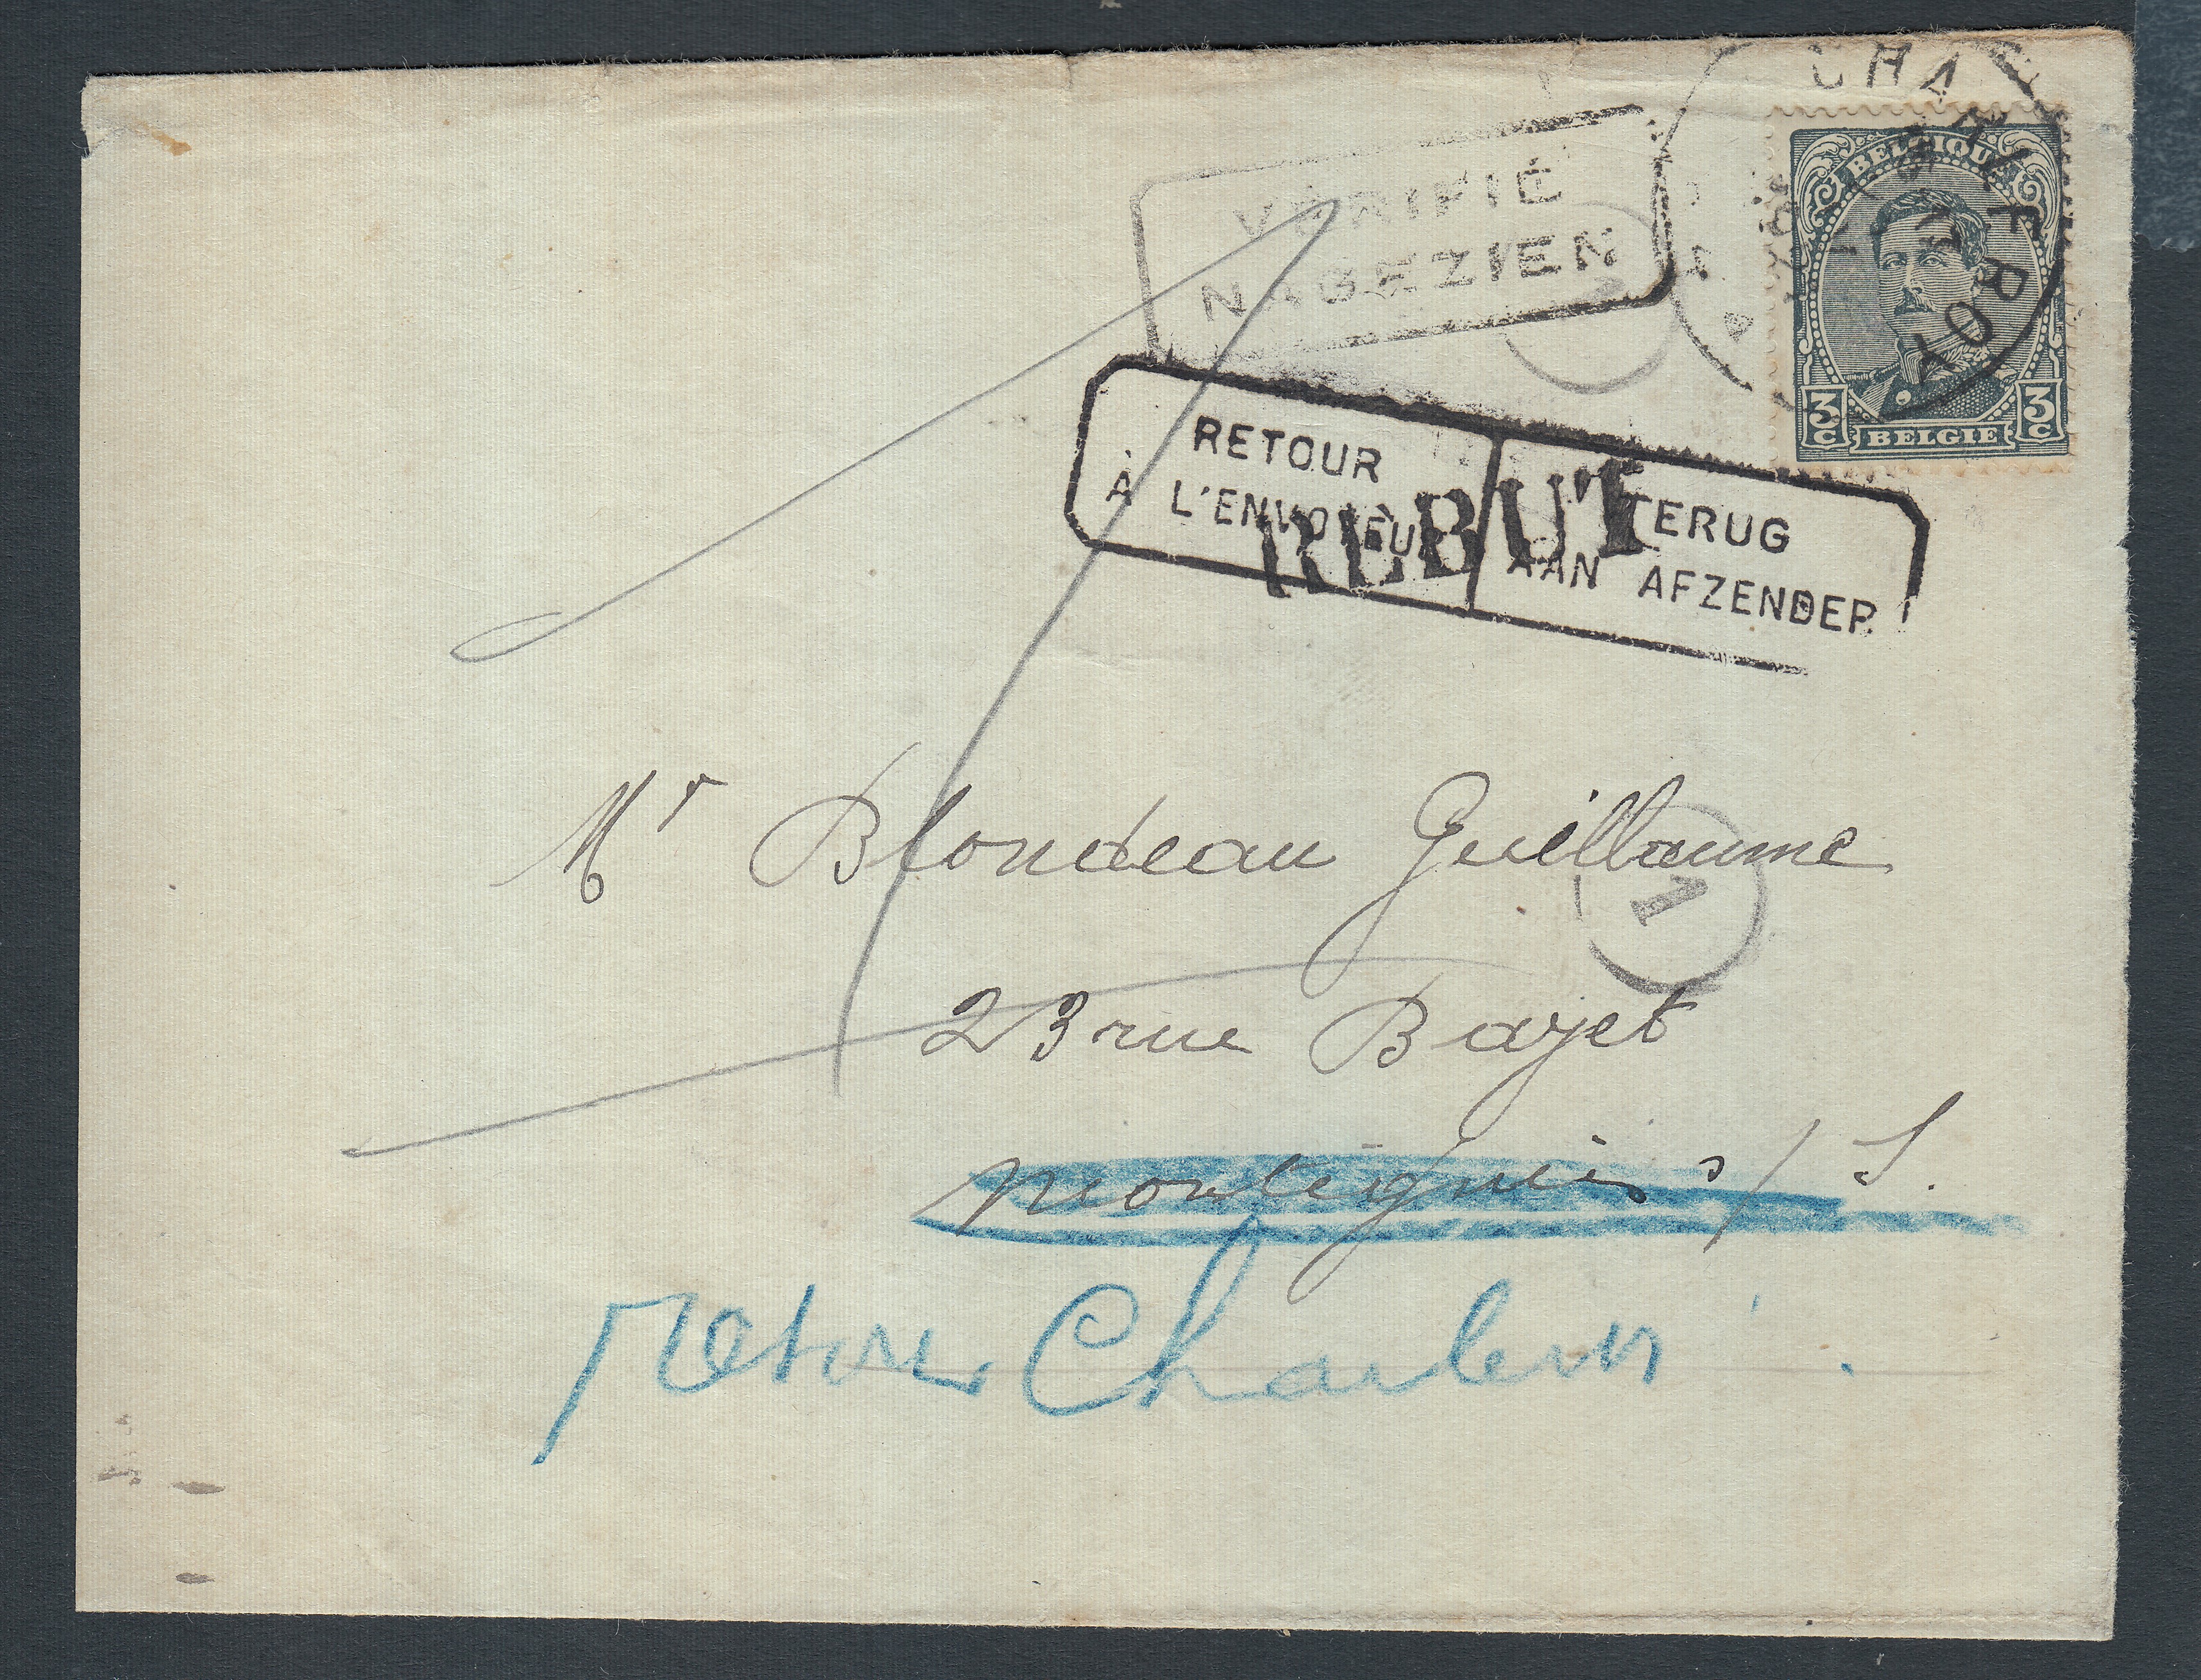 CHARLEROY
VÉRIFIÉ
NAGEZIEN
BELGIQUE
3c BELGIE 3c
RETOUR
À L'ENVOYEUR
TERUG
AAN AFZENDER
REBUT
Mr Blondeau Guillaume
1
23 rue Bayet
Montignies s/ S.
Retour Charleroi